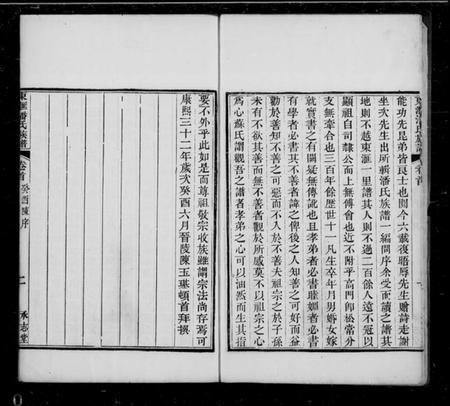 能功先昆弟皆良士也則今六載復晤辱先生贈詩走謝
坐次先生出所輯潘氏族譜一編問序余受而讀之譜其
地則不越東匯一里譜其人則不過二百餘人遠不冠以
顯祖自司隸公而上無傅會也近不附乎高門卽松當分
支無牽合也三百年餘歷世十一凡生卒年月男婚女嫁
就實書之有闕疑無傳訛也且孝弟者必書睦姻者必書
有學者必書其不善者諱之俾後之人知善之可好而益
勸於善知不善之可惡而不入於不善夫祖宗之於子孫
未有不欲其善而無不善者觀於所感莫不以祖宗之心
爲心蘇氏謂觀吾之譜者孝弟之心可以油然而生其指
要不外乎此如是而尊祖敬宗收族雖謂宗法尚存焉可
康熙三十二年歲次癸酉六月晉陵陳玉璂頓首拜撰
東匯潘氏族譜
卷首 癸酉陳序
二
承志堂